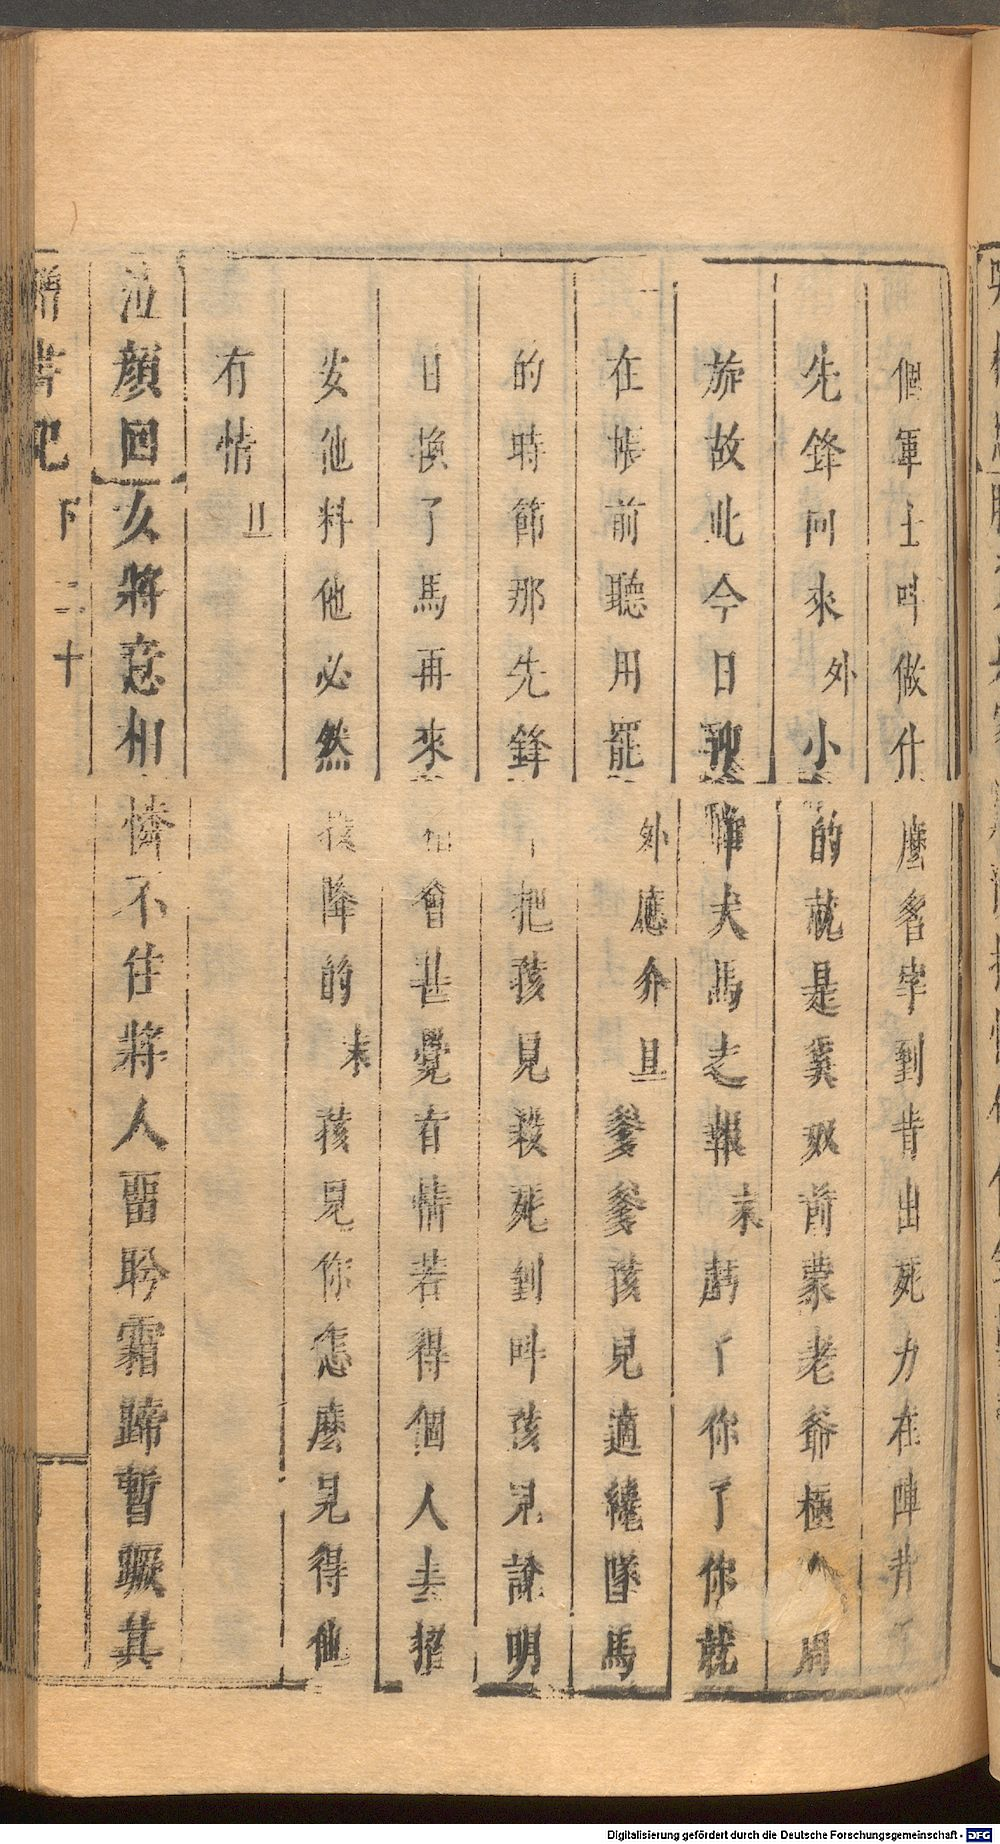 個軍士叫做什麼名字到肯出死力在陣背了
先鋒回來外小的就是奚奴前蒙老爺極用
旂故此今日效犬馬之報末虧了你了你就
在帳前聽用罷外應介旦爹爹孩兒適纔墜馬
的時節那先鋒把孩兒殺死到叫孩兒說明
日換了馬再來會甚覺有情若得個人去招
安他料他必然降的末孩兒你怎麼見得他
有情旦
泣顏回女將意相憐不住將人留盼霜蹄暫蹶其
書記 下 二十
Digitalisierung gefördert durch die Deutsche Forschungsgemeinschaft - DFG